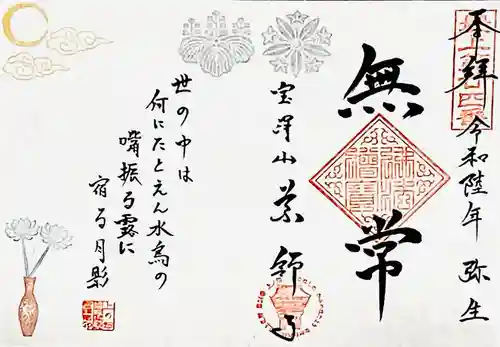 奉拝
令和陸年 弥生
無常
宝澤山 薬師寺
世の中は
何にたとえん水鳥の
嘴振る露に
宿る月影